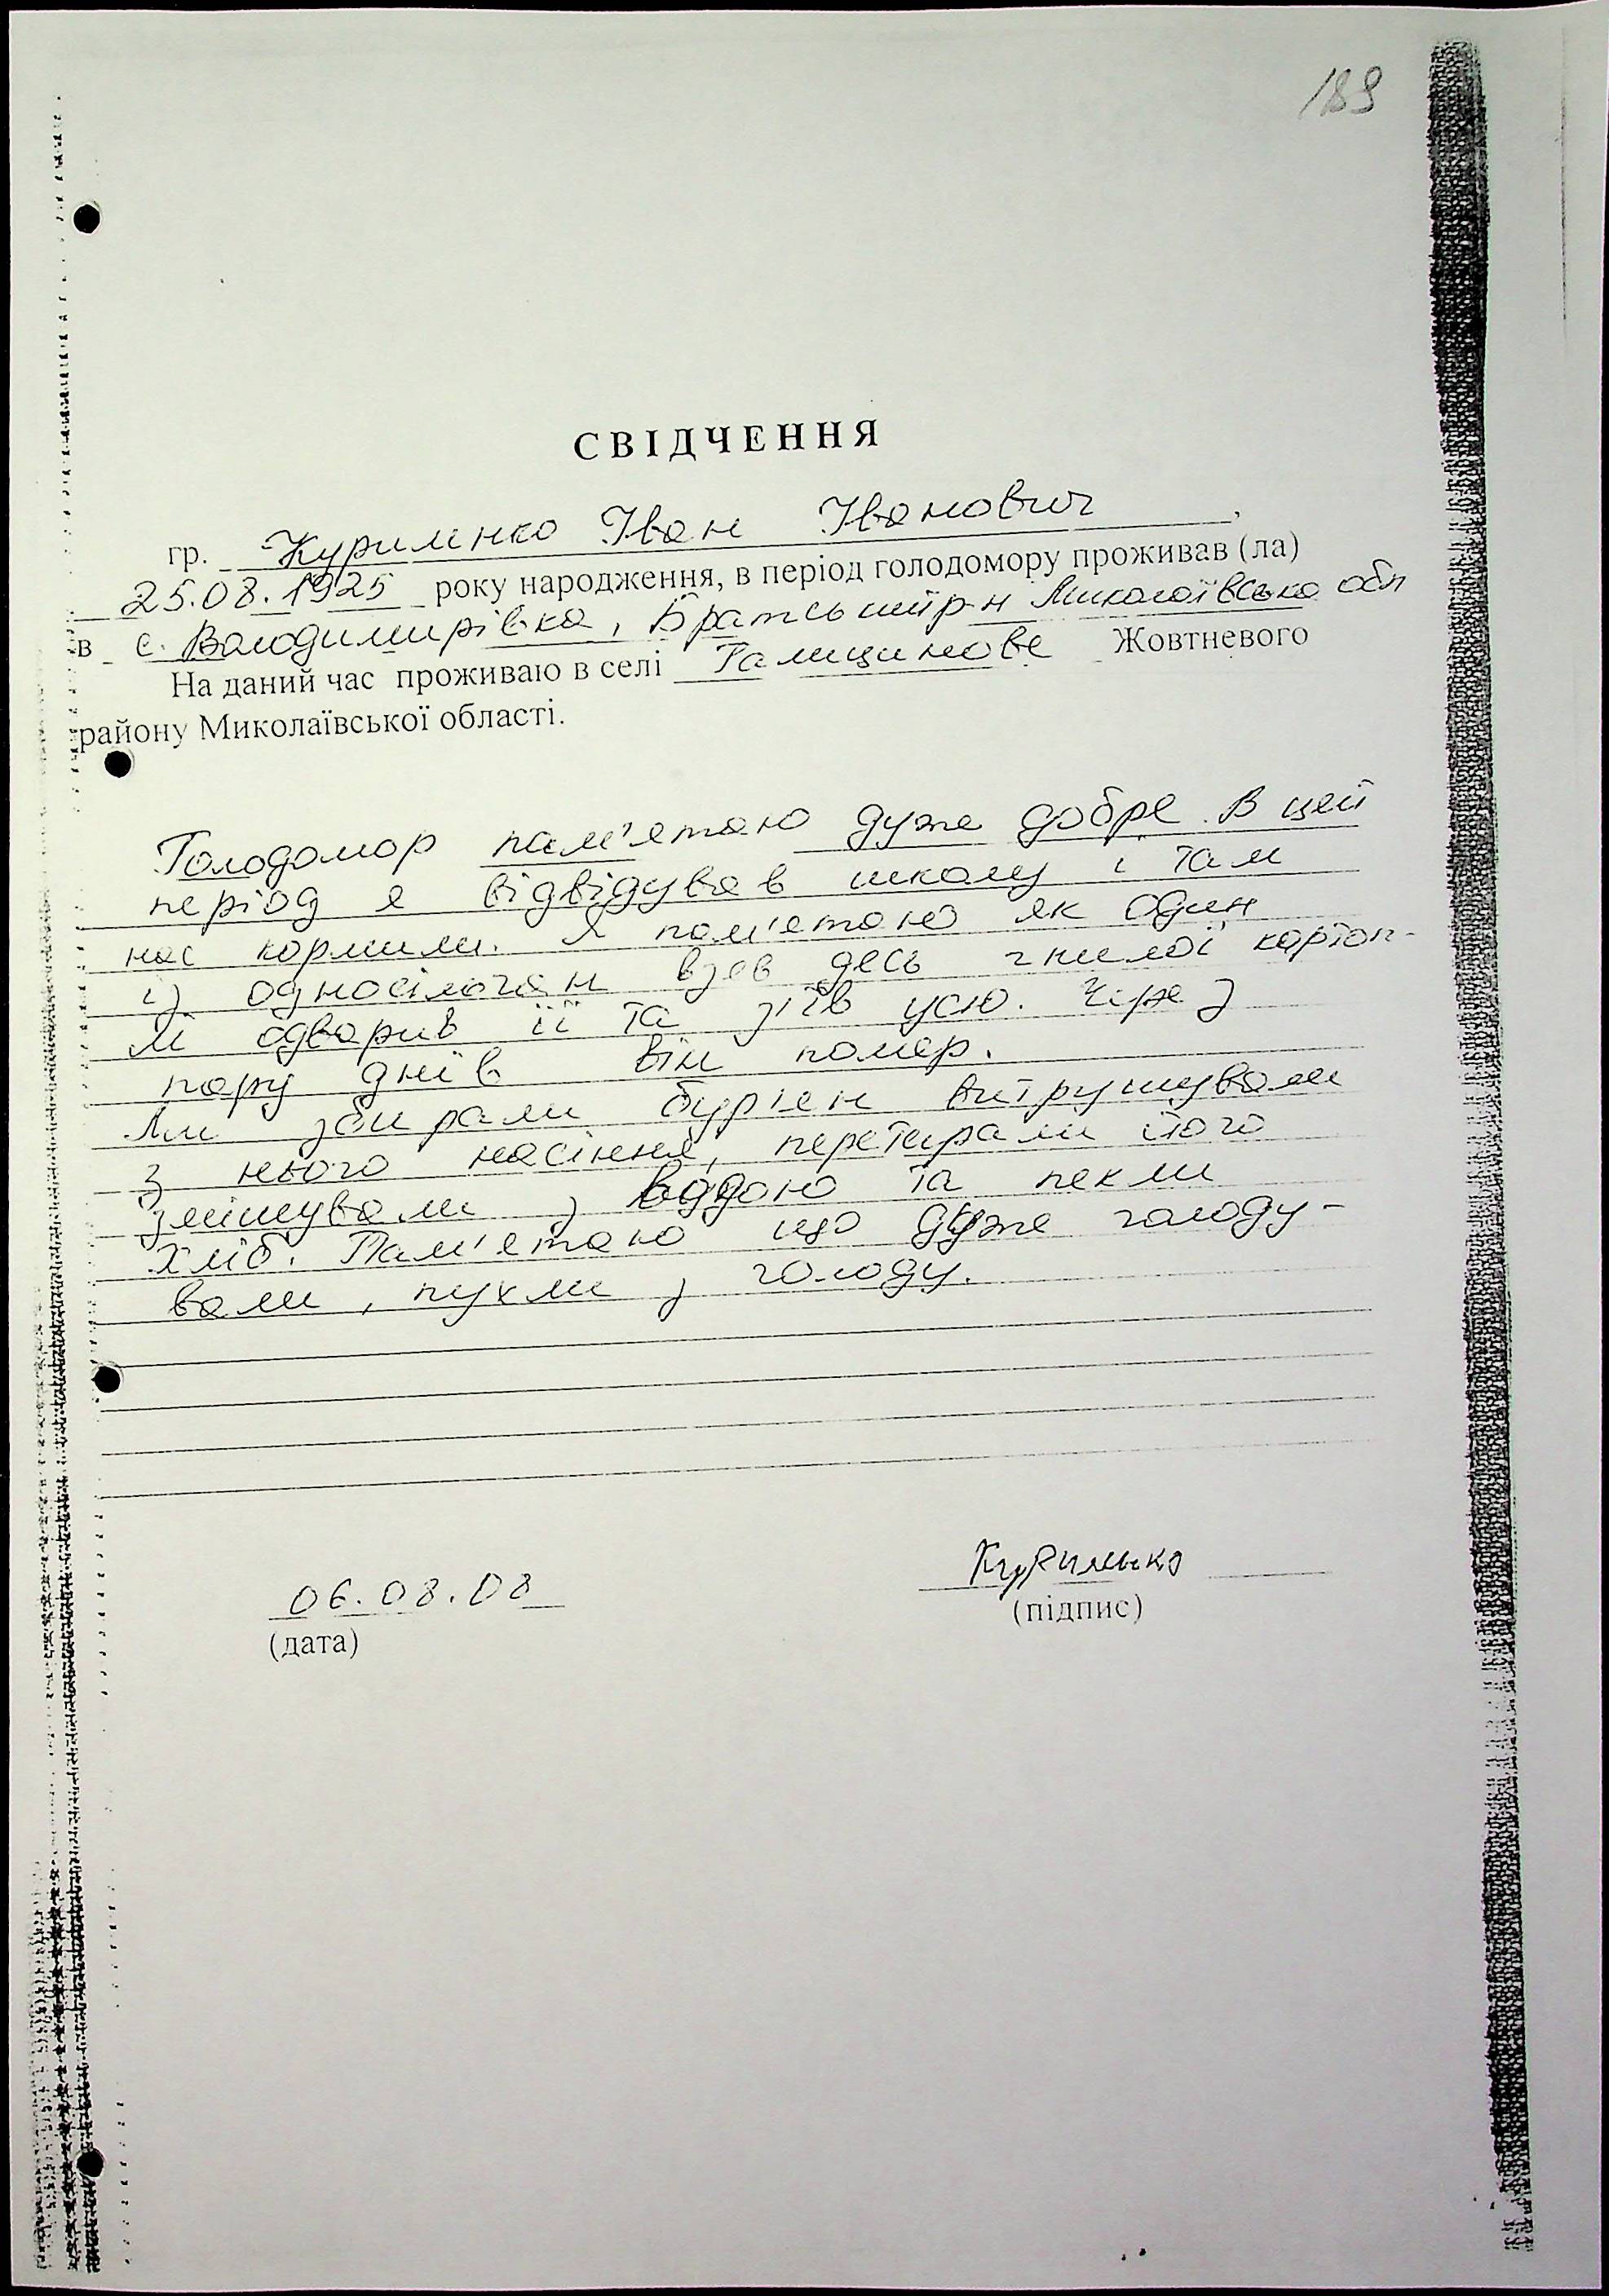 189
СВІДЧЕННЯ
гр. Куриленко Іван Іванович,
25.08.1925 року народження, в період голодомору проживав (ла)
в с. Володимирівка, Братський р-н Миколоївсько обл
На даний час проживаю в селі Галицинове Жовтневого
району Миколаївської області.
Голодомор пам'ятаю дуже добре. В цей
період я відвідував школу і там
нас кормили. Я пам'ятаю як один
із односільчан взяв десь гнилої картоп-
лі одварив її та з'їв усю. Через
пару днів він помер.
Ми збирали бур'ян витрушували
з нього насіння, перетирали його
змішували з водою та пекли
хліб. Пам'ятаю що дуже голоду-
вали, пухли з голоду.
06.08.08
(дата)
Куриленко
(підпис)